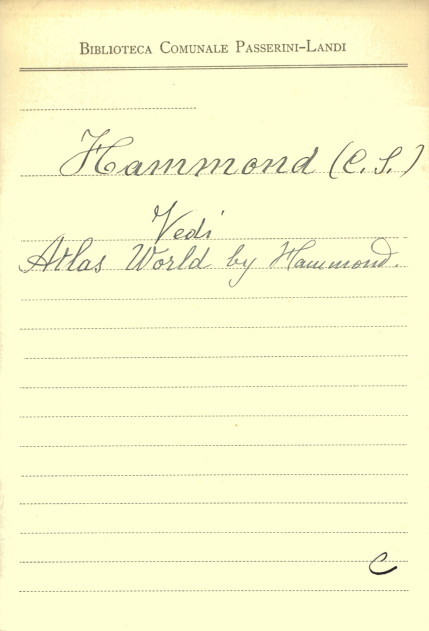 BIBLIOTECA COMUNALE PASSERINI-LANDI
Hammond (C. S.)
Vedi
Atlas World by Hammond.
C